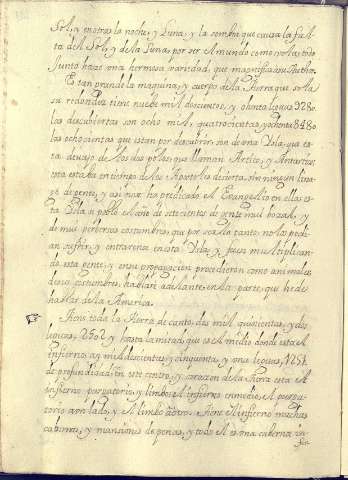 Sol, y en otras la noche, y Luna, y la sombra que causa la falta
ta del Sol, y de la Luna, por ser el mundo como
Junto hazen una hermosa variedad, que magnifica a su Author.
Es tan grande la maquina, y cuerpo de la tierra que sola
su redondez tiene nuebe mil doscientos, y ochenta leguas 9280.
las descubiertas son ocho mil, quatrocientas, y ochenta 8480
las ochocientas que estan por descubrir son de una Isla, que es
ta devajo de los dos polos que llaman Artico, y Antartico
esta estaba en tiempo de los Apostoles desierta, sin ningun lina
ge de gente, y assi no se ha predicado el Evangelio en ella, es
ta Isla se poblo el año de setecientos de gente mui bozal, y
de mui perbersas costumbres, que por ser la tanto, no las podi
an sufrir, y entraron en esta Isla, y fuese multiplican
do esta gente, y en su propagacion procedieron como animales
de sus costumbres, hablaré adelante en la parte, que he de
hablar de la America.
Tiene toda la tierra de canto dos mil quinientas, y dos
leguas, 2502 y hasta la mitad, que es el medio donde esta el
infierno, ay mil ducientas y cinquenta, y una leguas, 1251.
de profundidad en este centro, y corazon de la tierra esta el
infierno, purgatorio, y limbo el infierno en medio, el purga
torio a un lado, y el limbo a otro. Tiene el infierno muchas
cabernas, y mansiones de penas, y todo el es una caberna in